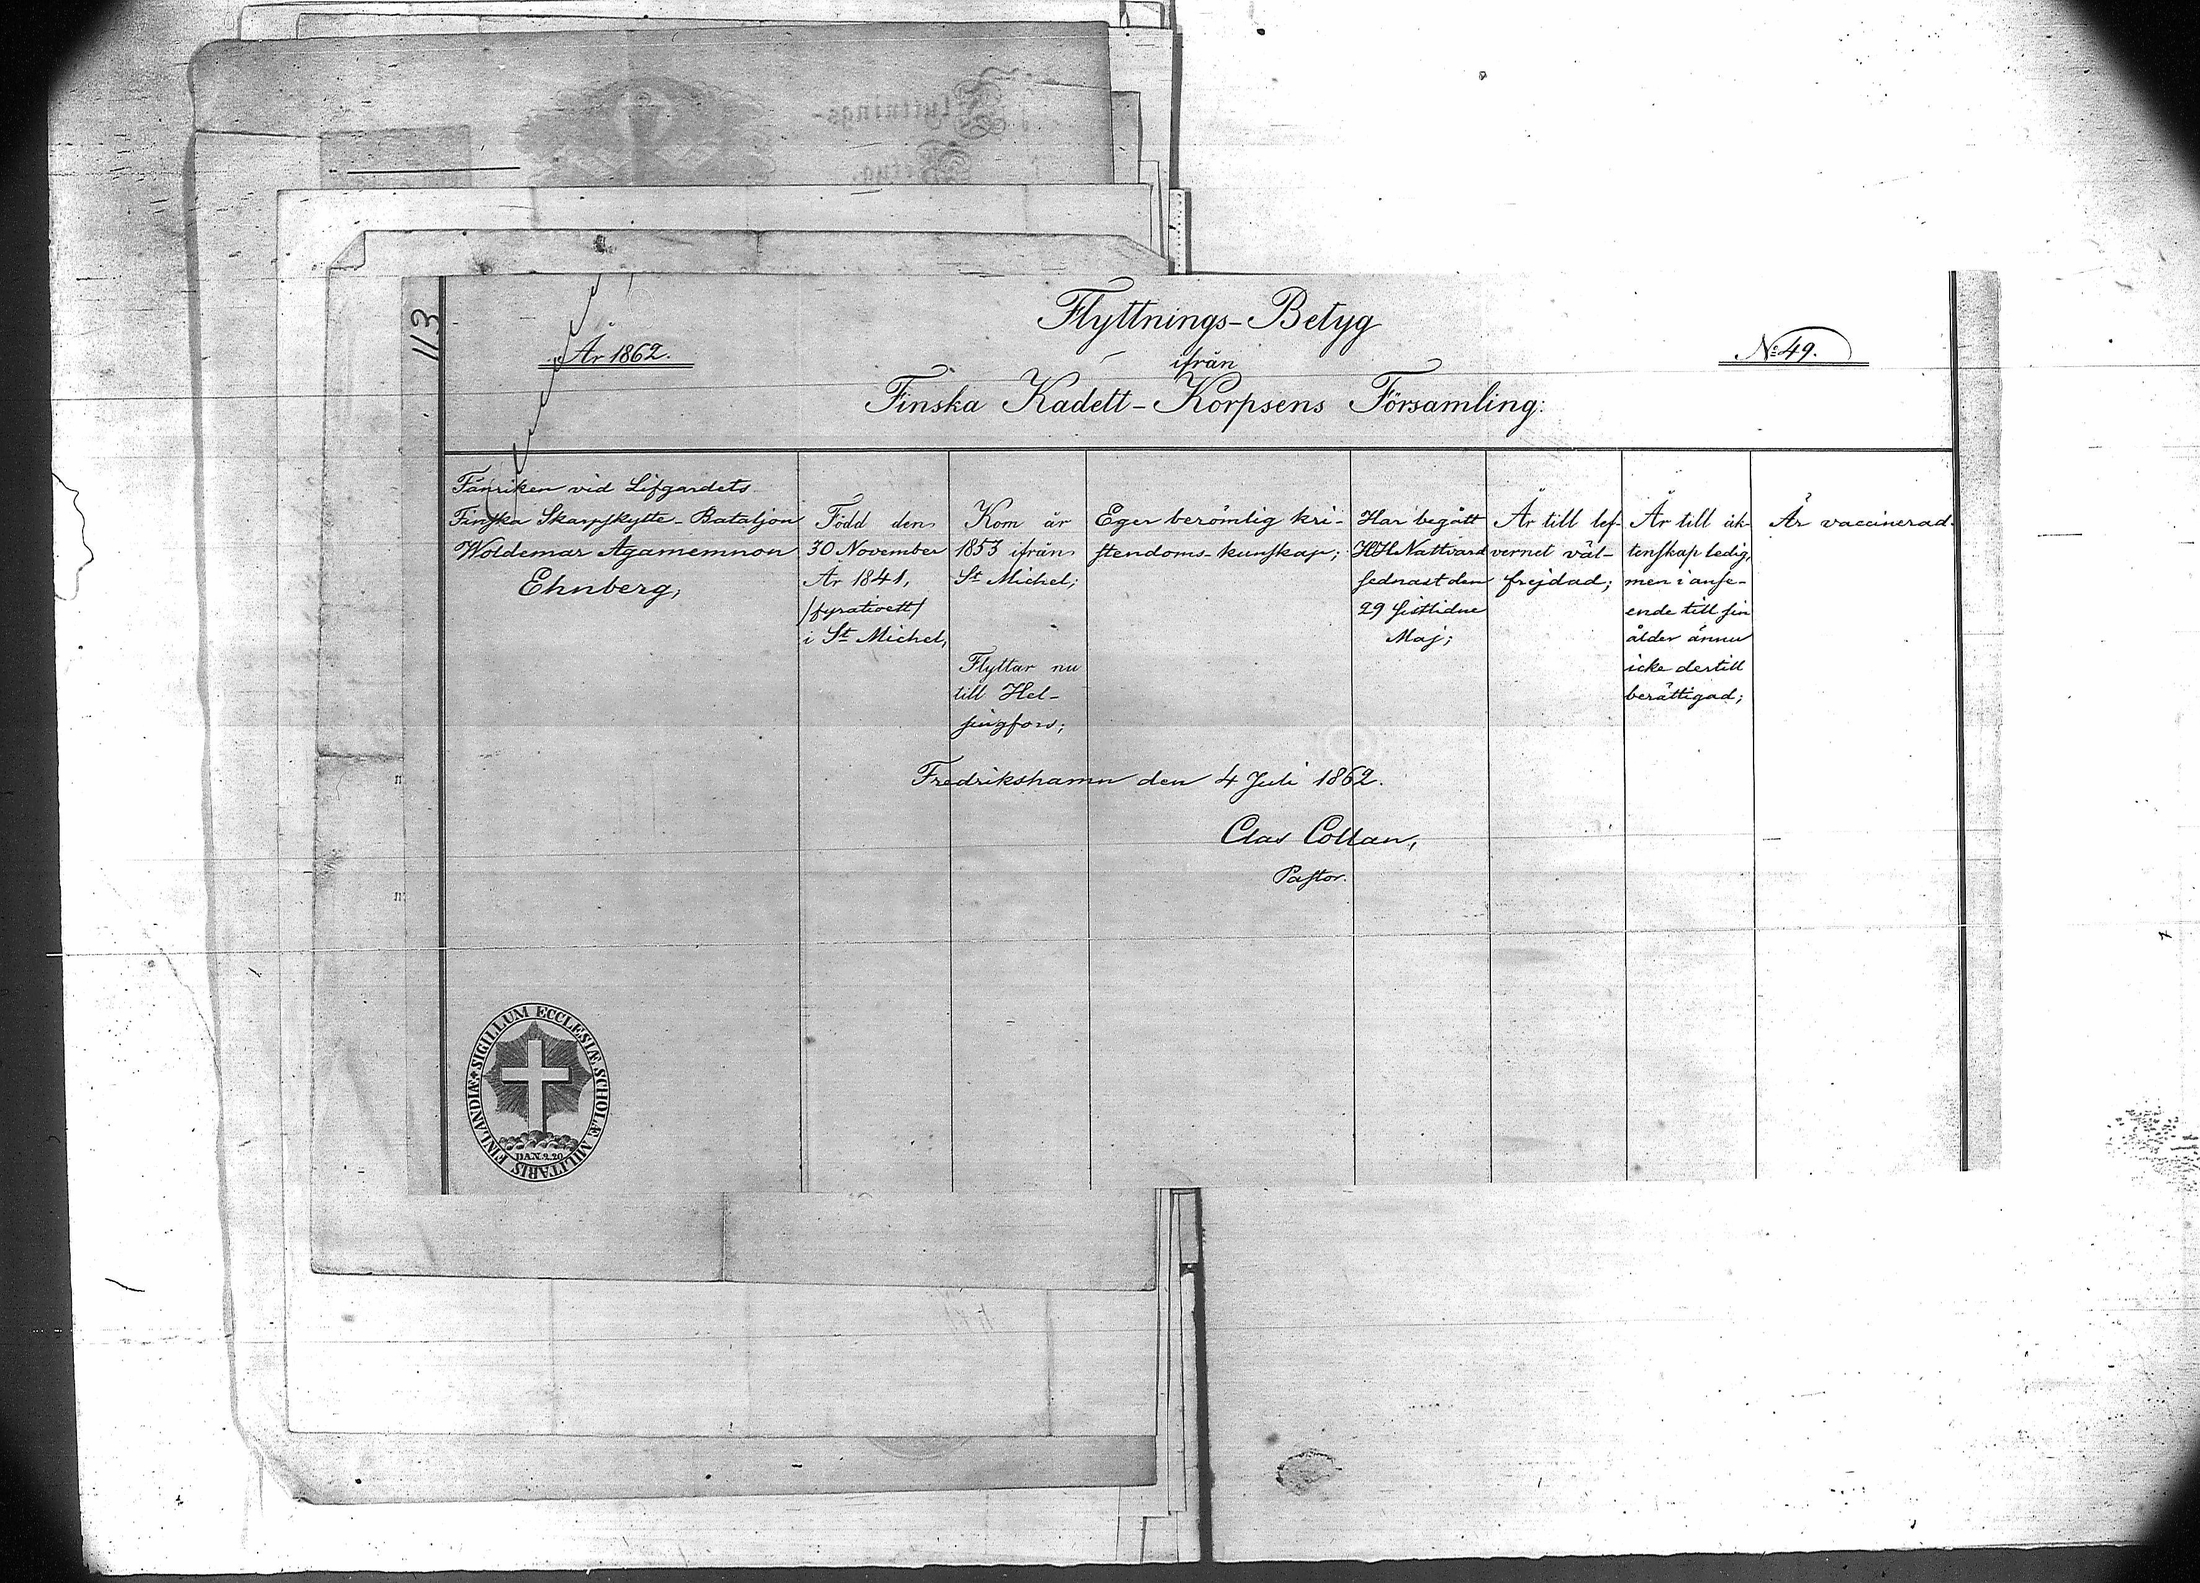 Flyttnings-
Betyg.
113
År 1862.
Flyttnings-Betyg
ifrån
Finska Kadett-Korpsens Församling:
No 49.
Fänriken vid Lifgardets
Finska Skarpskytte-Bataljon
Woldemar Agamemnon
Ehnberg,
Född den
30 November
År 1841,
/fyratioett/
i St Michel,
Kom år
1853 ifrån
St Michel;
Flyttar nu
till Hel-
singfors;
Eger berömlig kri-
stendoms-kunskap;
Har begått
H.H. Nattvard
sednast den
29 sistlidne
Maj;
Är till lef-
vernet väl-
frejdad;
Är till äk-
tenskap ledig,
men i anse-
ende till sin
ålder ännu
icke dertill
berättigad;
Är vaccinerad.
Fredrikshamn den 4 Juli 1862.
Clas Collan,
Pastor.
SIGILLUM ECCLESIÆ SCHOLÆ MILITARIS FINLANDIÆ
DAN. 9. 20